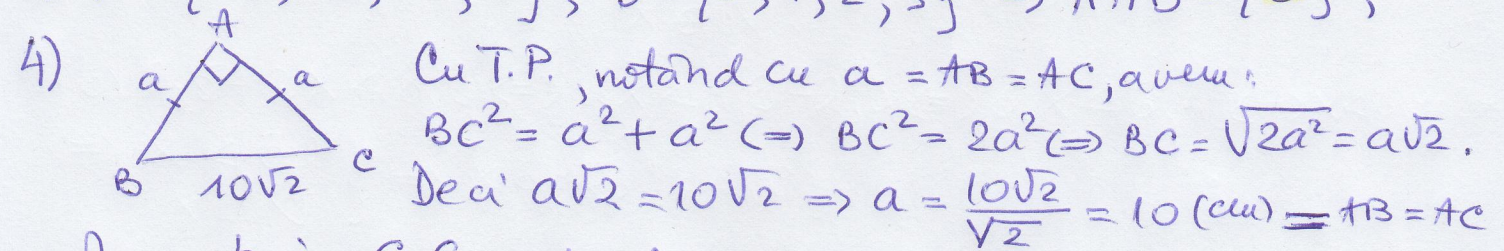 4)
A
a a
B 10√2 C
Cu T.P., notând cu a = AB = AC, avem:
BC² = a² + a² (=) BC² = 2a² (=) BC = √2a² = a√2.
Deci a√2 = 10√2 => a = 10√2/√2 = 10 (cm) = AB = AC